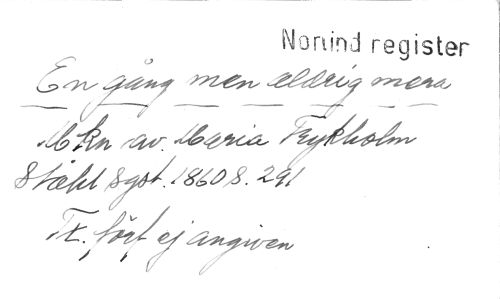 Norlind register
En gång men aldrig mera
Mkn av. Maria Frykholm
Stockh 1860 s. 291
Tx. förf ej angiven